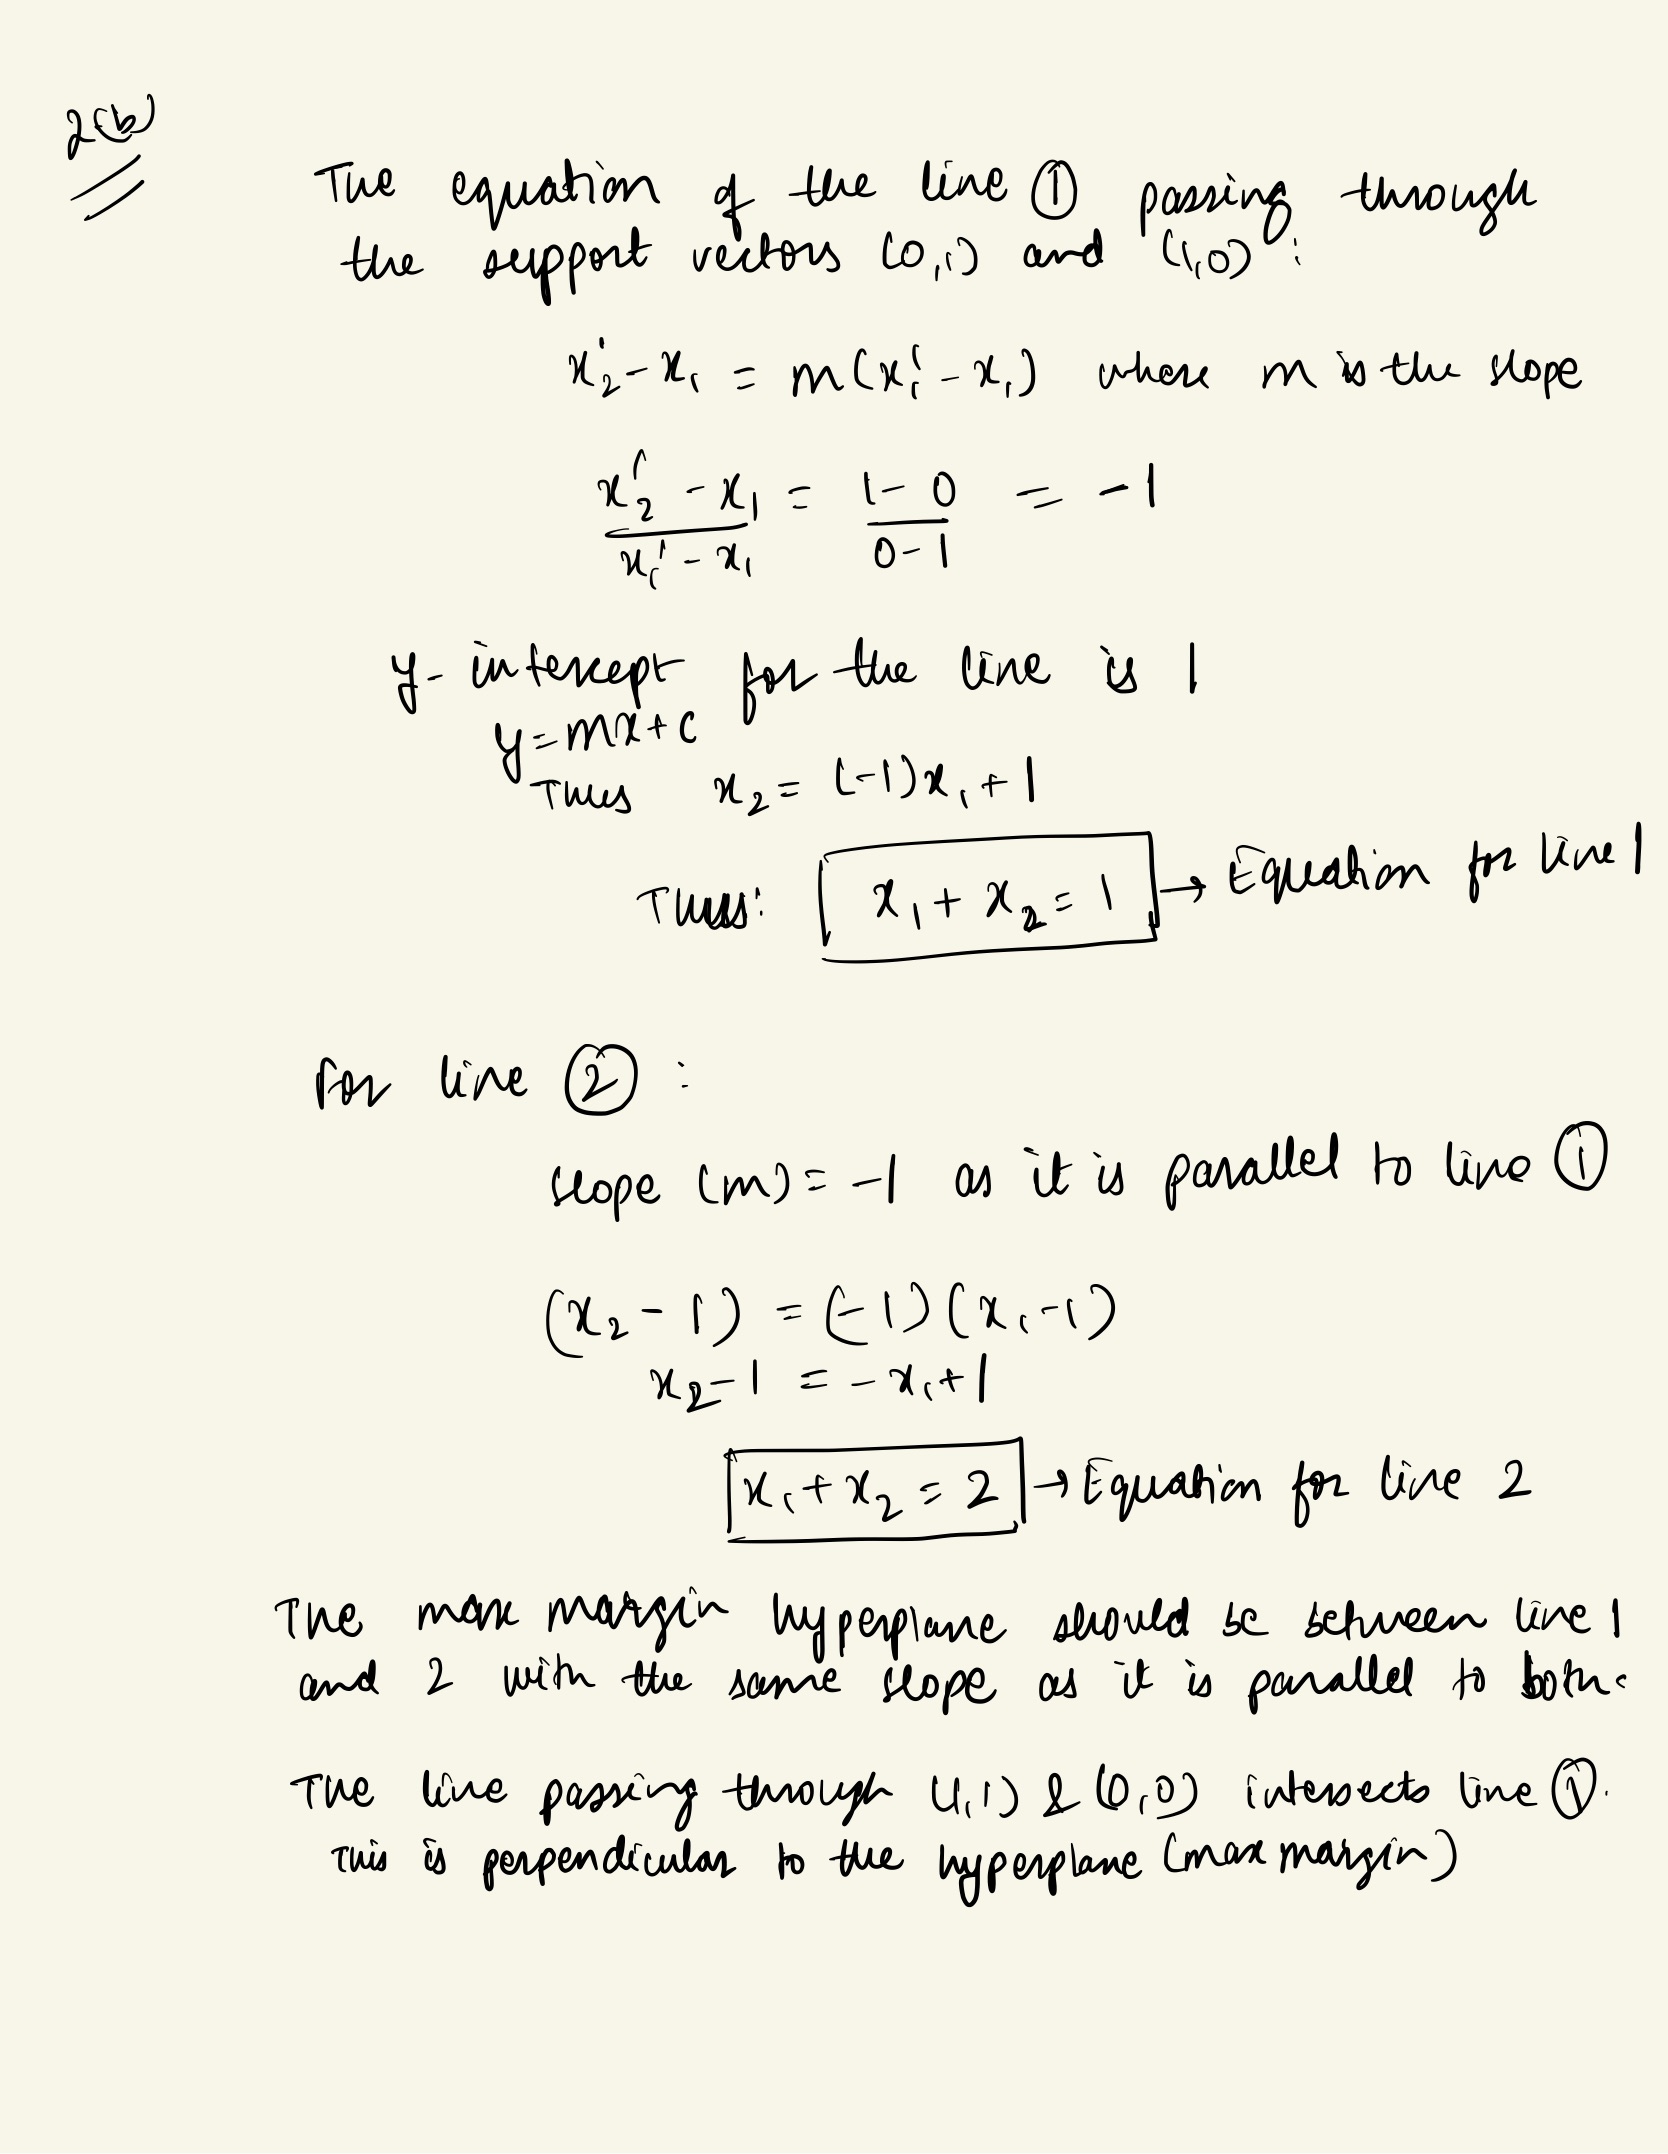 2(b)
The equation of the line ① passing through
the support vectors (0,1) and (1,0) :
x₂' - x₁ = m(x₁' - x₁) where m is the slope
x₂' - x₁ / x₁' - x₁ = 1 - 0 / 0 - 1 = -1
y-intercept for the line is 1
y = mx + c
Thus x₂ = (-1)x₁ + 1
Thus: x₁ + x₂ = 1 → Equation for line 1
For line ② :
slope (m) = -1 as it is parallel to line ①
(x₂ - 1) = (-1)(x₁ - 1)
x₂ - 1 = -x₁ + 1
x₁ + x₂ = 2 → Equation for line 2
The max margin hyperplane should be between line 1
and 2 with the same slope as it is parallel to both.
The line passing through (1,1) & (0,0) intersects line ①.
This is perpendicular to the hyperplane (max margin)